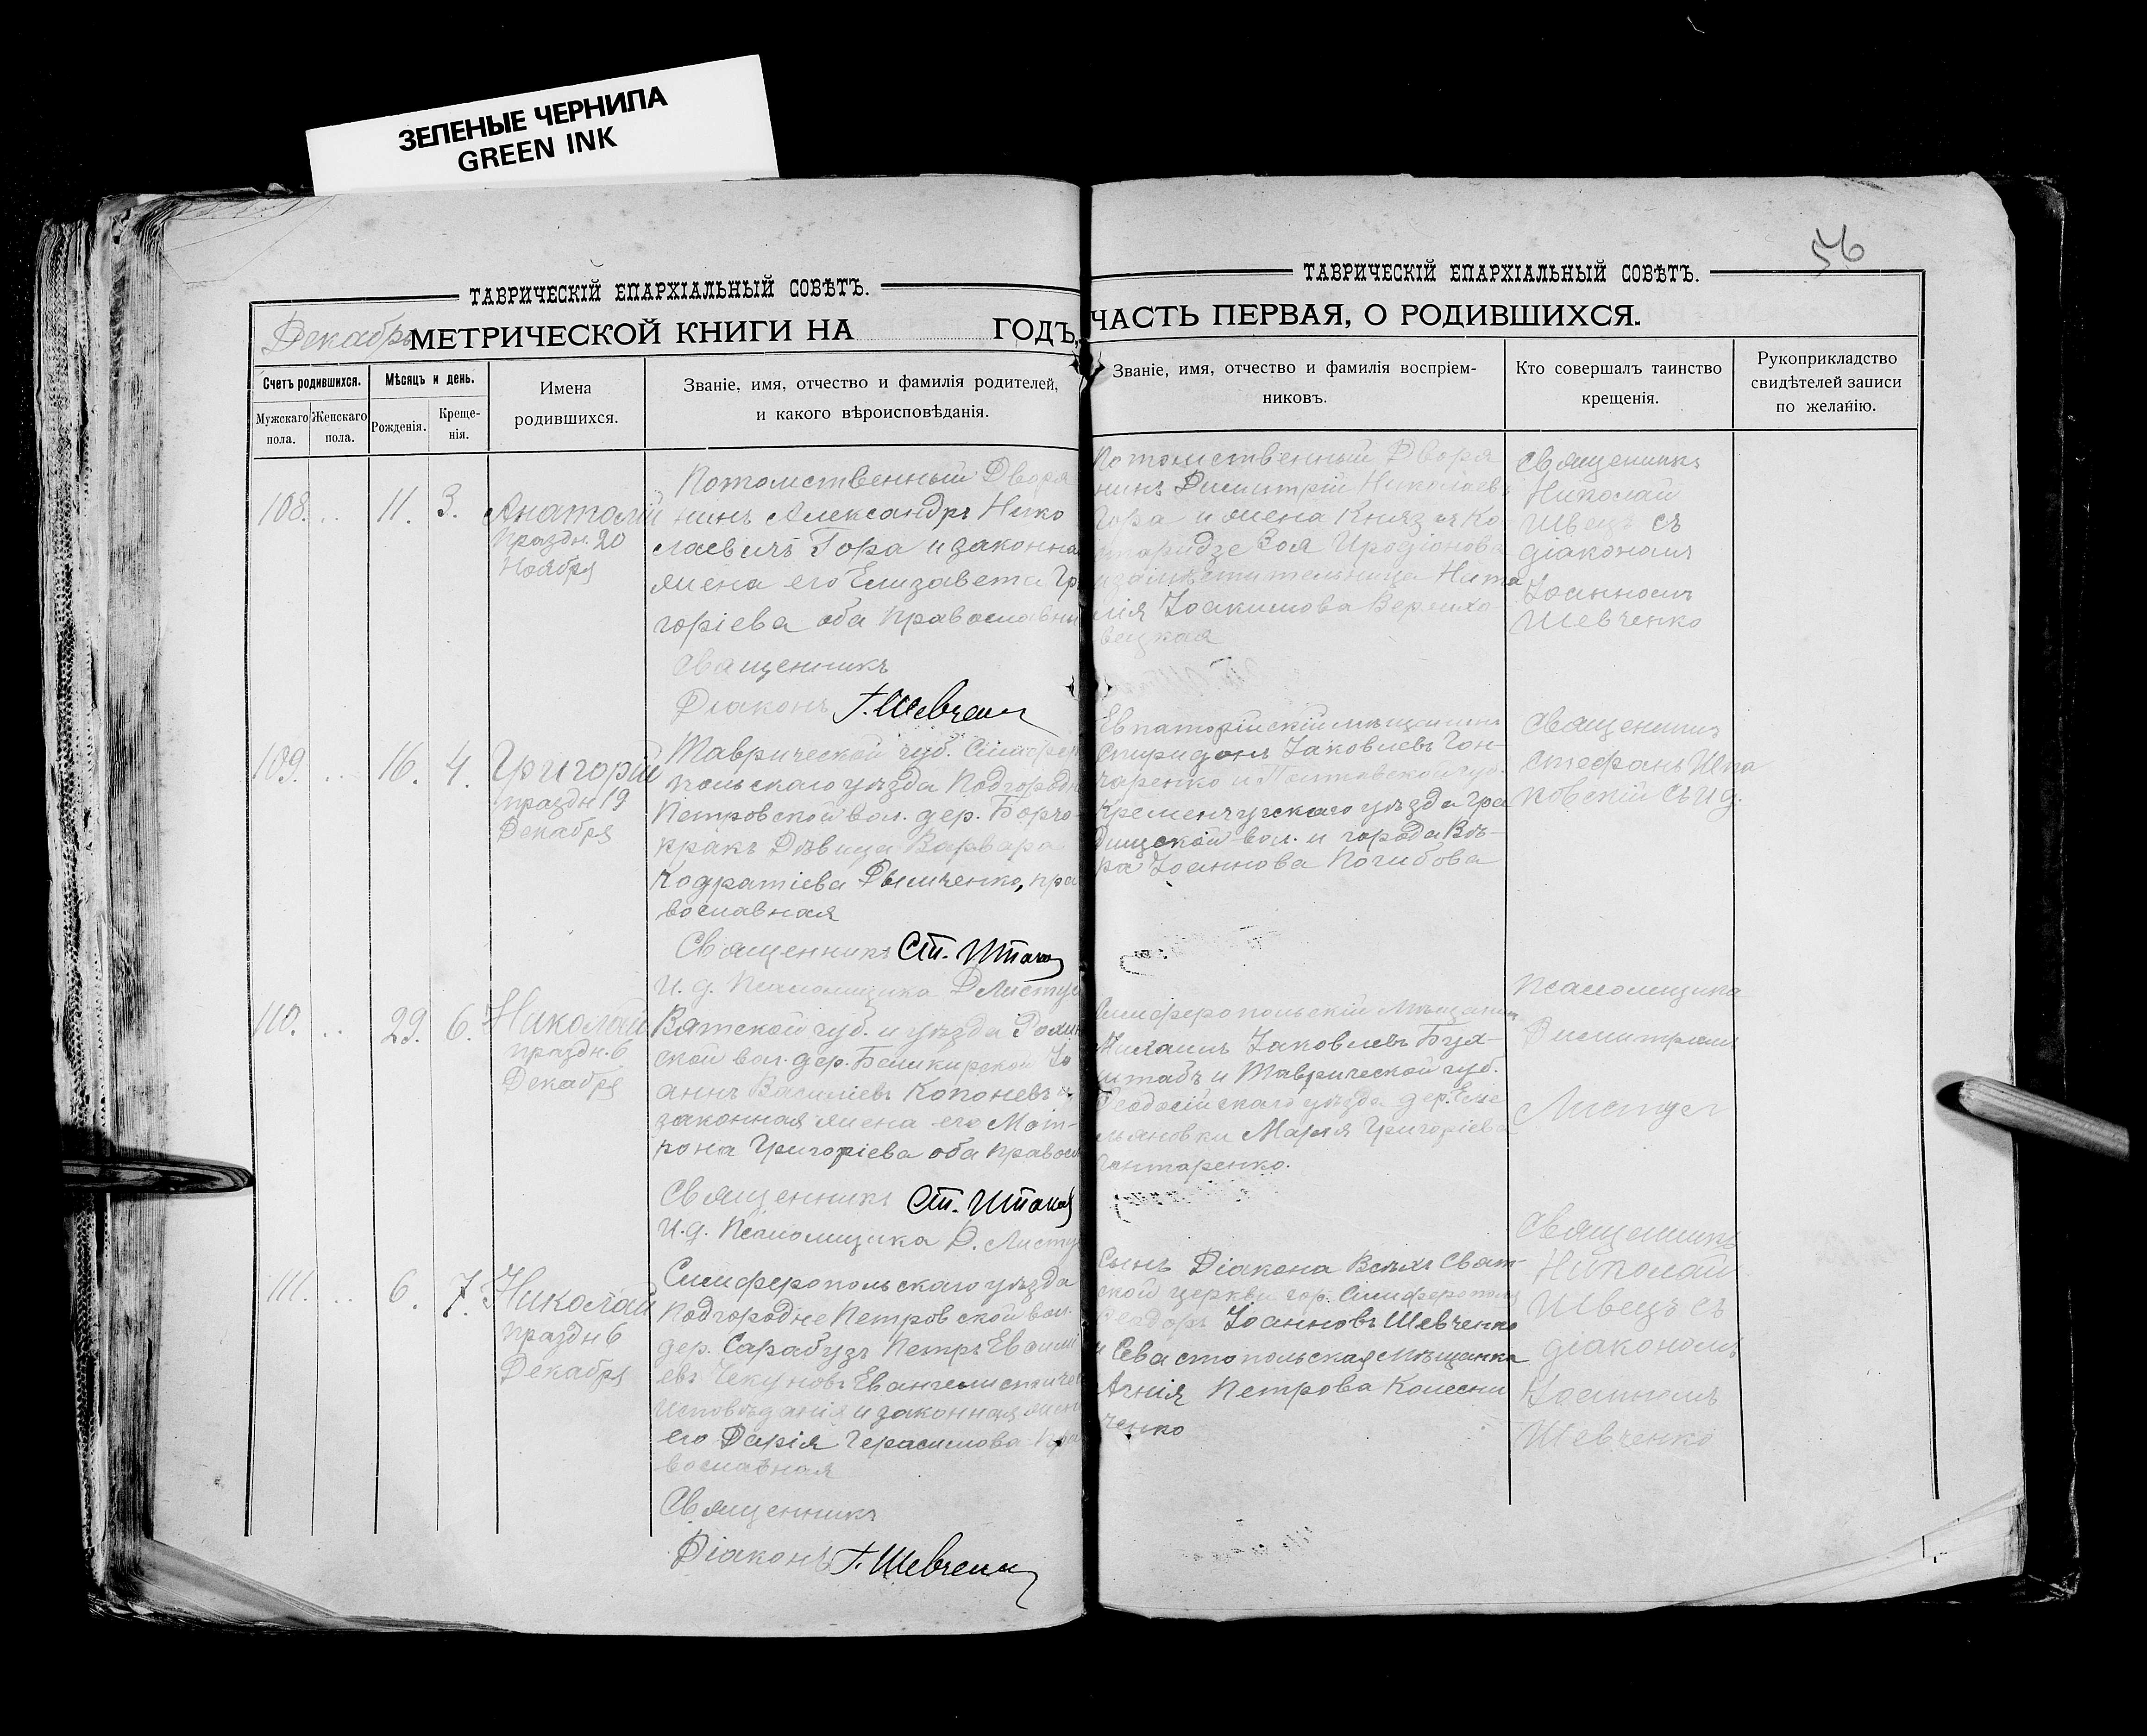 ЗЕЛЕНЫЕ ЧЕРНИЛА
GREEN INK
56
ТАВРИЧЕСКІЙ ЕПАРХІАЛЬНЫЙ СОВѢТЪ.
Декабрь МЕТРИЧЕСКОЙ КНИГИ НА ГОДЪ,
Счетъ родившихся.
Мужскаго пола.
Женскаго пола.
Мѣсяцъ и день.
Рожденія.
Креще-
нія.
Имена
родившихся.
Званіе, имя, отчество и фамилія родителей,
и какого вѣроисповѣданія.
108. 11. 3.
Анатолій
праздн. 20
Ноября
Потомственный Дворя
нинъ Александръ Нико
лаевичъ Гора и законная
жена его Елизавета Гр
горіева оба православны
Священникъ
Діаконъ І. Шевченко
109. 16. 4.
Григорій
праздн 19
Декабря
Таврической губ. Симфер
польскаго уѣзда Подгородн
Петровской вол. дер.
Дѣвица Варвара
Кодратіева Дымченко, пра
вославная
Священникъ Ст.
И. д. Псаломщика Д
110. 29. 6.
Николай
праздн. 6
Декабря
Вятской губ. и уѣзда
ской вол. дер. Бешкирской Іо
аннъ Василіевъ Копоневъ и
законная жена его Мат-
рона Григоріева оба правосл
Священникъ Ст.
И. д. Псаломщика Д.
111. 6. 7.
Николай
праздн 6
Декабря
Симферопольскаго уѣзда
Подгородне Петровской вол.
дер. Сарабузъ Петръ
евъ Чекуновъ Евангелическ
исповѣданія и законная жена
его Дарія Герасимова пра
вославная
Священникъ
Діаконъ І. Шевченко
ТАВРИЧЕСКІЙ ЕПАРХІАЛЬНЫЙ СОВѢТЪ.
ЧАСТЬ ПЕРВАЯ, О РОДИВШИХСЯ.
Званіе, имя, отчество и фамилія воспріем-
никовъ.
Кто совершалъ таинство
крещенія.
Рукоприкладство
свидѣтелей записи
по желанію.
Потомственный Дворя
нинъ Димитрій Николаевъ
Гора и жена Князя Ко
Зоя Иродіонова
Ната
лія Іоакимова
вецкая
Священникъ
Николай
Швецъ съ
діакономъ
Іоанномъ
Шевченко
Евпаторійскій мѣщанинъ
Спиридонъ Іаковлевъ Гон-
чаренко и Полтавской губ.
Кременчугскаго уѣзда Гра
дижской вол. и города Вѣ-
ра Іоаннова Погибова
Священникъ
Стефанъ
Симферопольскій мѣщанинъ
Михаилъ Іаковлевъ Бук-
штабъ и Таврической губ.
Феодосійскаго уѣзда дер. Еме
льяновки Марія Григоріева
Гонтаренко.
псаломщика
Димитріемъ
Сынъ Діакона Всѣхъ Свят-
ской церкви гор. Симферополя
Феодоръ Іоанновъ Шевченко
и Севастопольская мѣщанка
Агнія Петрова Колесни
ченко
Священникъ
Николай
Швецъ съ
діакономъ
Іоанномъ
Шевченко